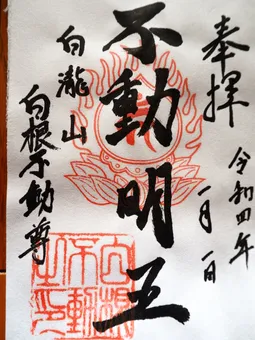 奉拝
令和四年
一月一日
不動明王
白瀧山
白根不動尊